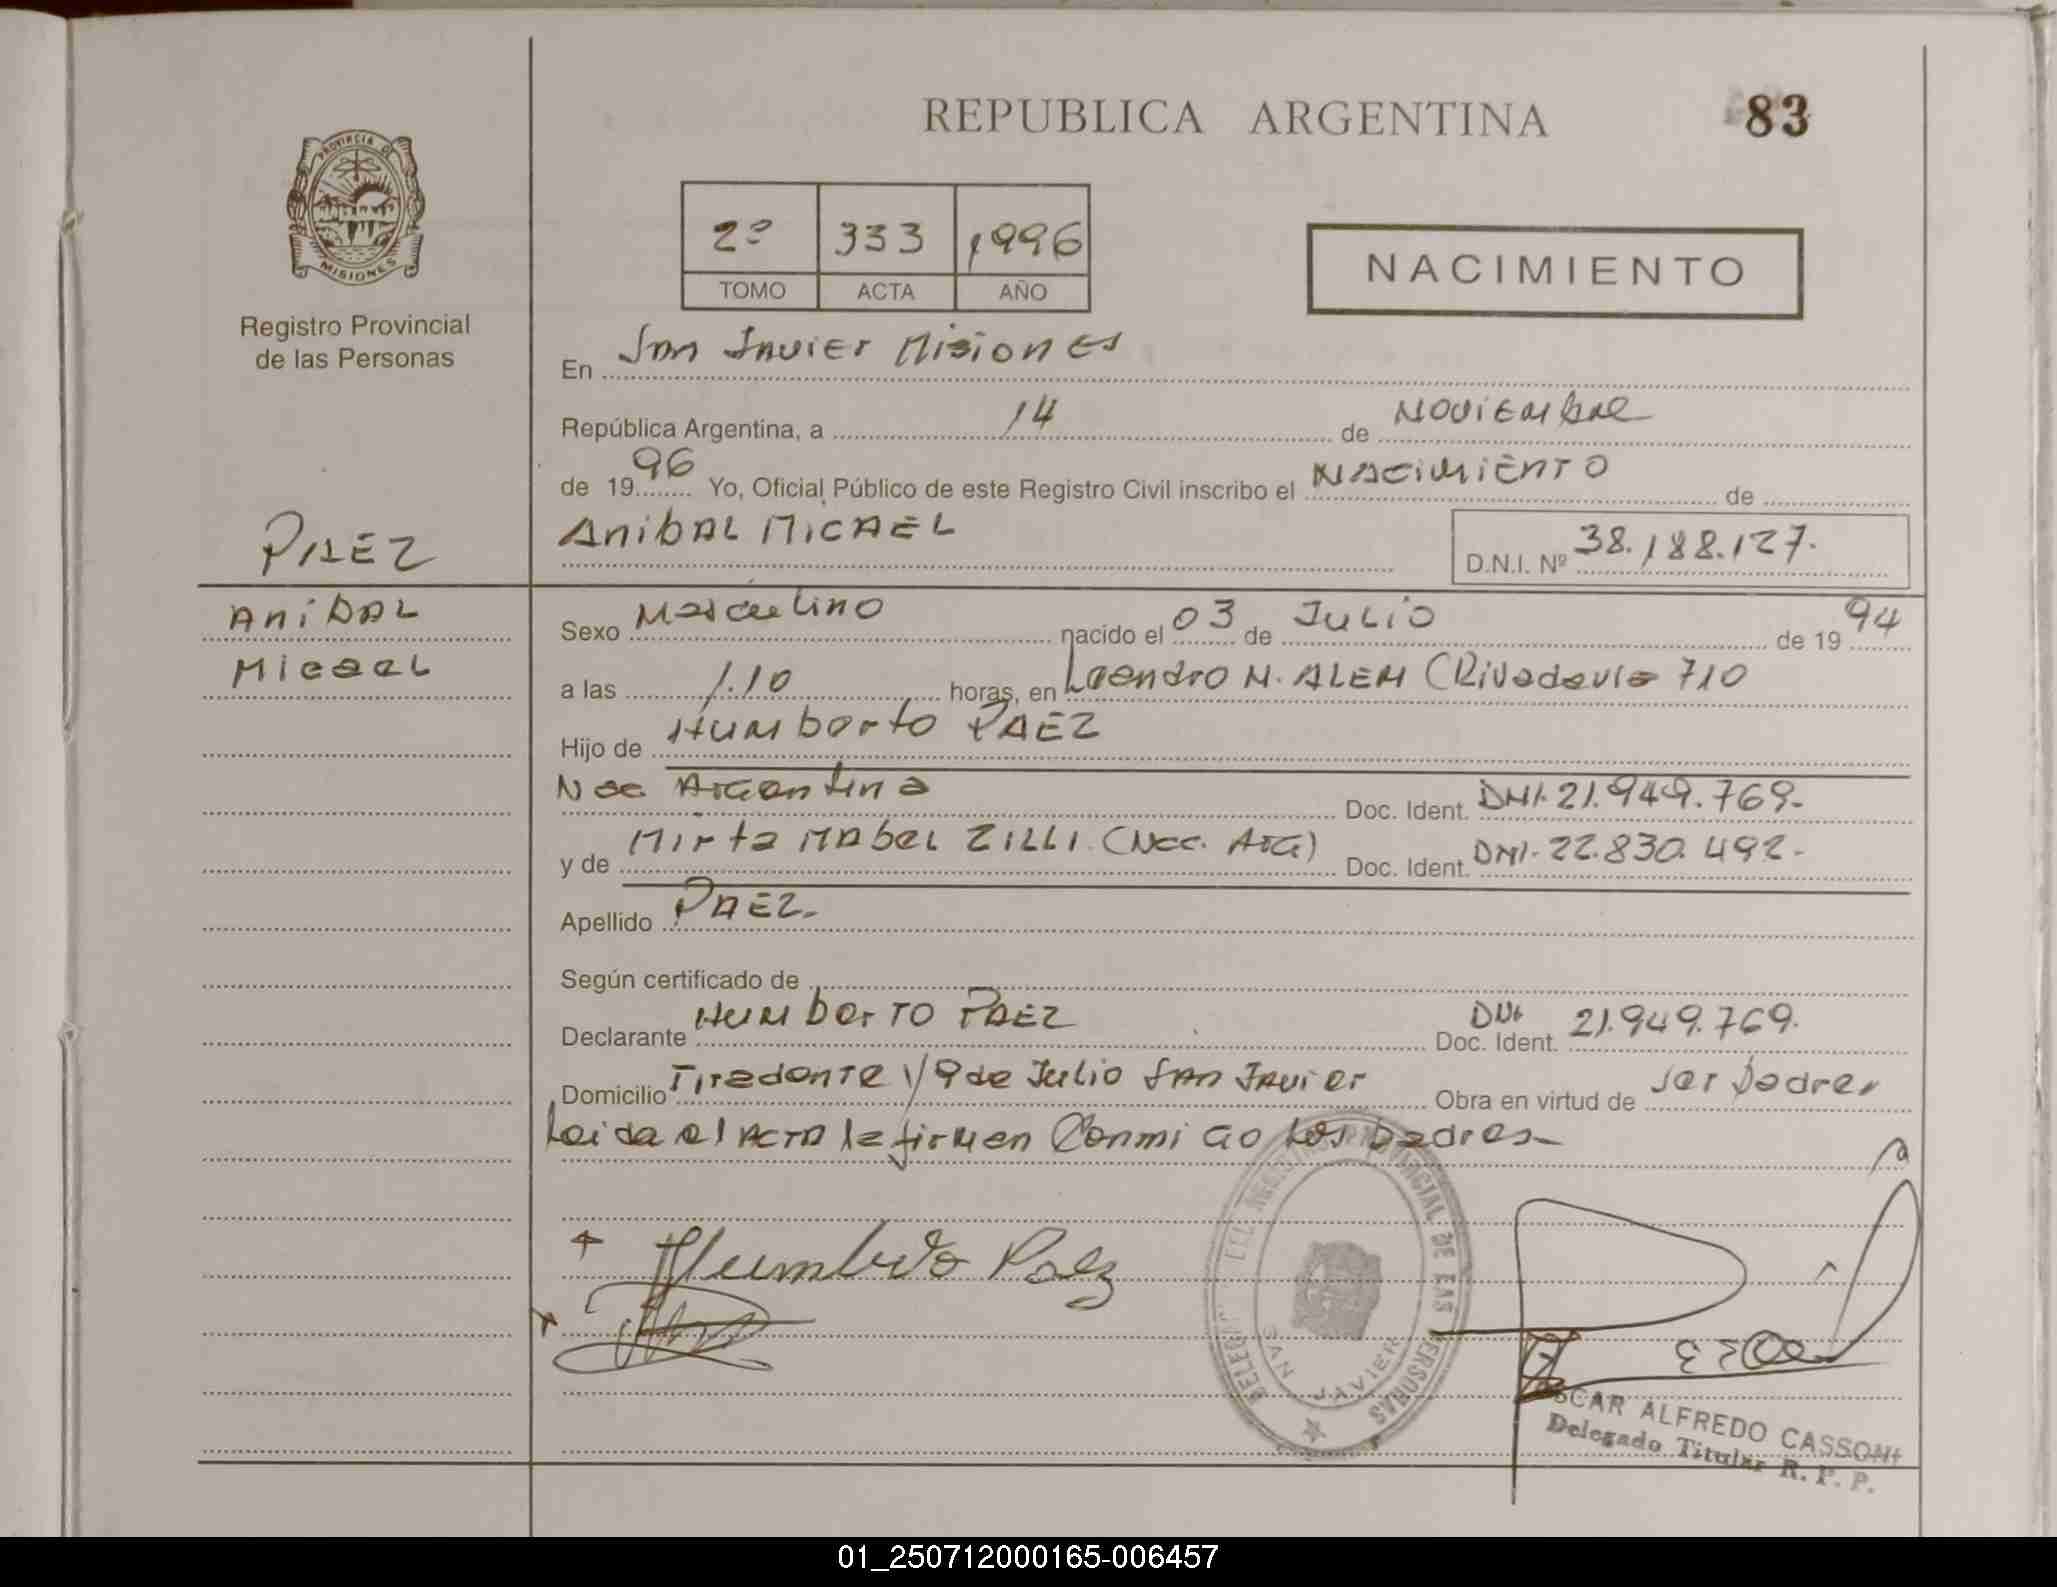 REPUBLICA ARGENTINA
83
PROVINCIA DE
MISIONES
Registro Provincial
de las Personas
2º 333 1996
TOMO ACTA AÑO
NACIMIENTO
En San Javier Misiones
República Argentina, a 14 de Noviembre
de 1996 Yo, Oficial Público de este Registro Civil inscribo el Nacimiento de
PAEZ
Anibal Micael
D.N.I. Nº 38.188.127.
Anibal
Micael
Sexo Masculino nacido el 03 de Julio de 1994
a las 1.10 horas, en Leandro N. Alem (Rivadavia 710
Hijo de Humberto PAEZ
Nac Argentina Doc. Ident. DNI. 21.949.769.-
y de Mirta Mabel ZILLI. (Nac. Arg) Doc. Ident. DNI. 22.830.492.-
Apellido PAEZ.-
Según certificado de
Declarante Humberto PAEZ Doc. Ident. DNI 21.949.769.
Domicilio Tiradente y 9 de Julio San Javier Obra en virtud de ser padres
Leida el acta la firman conmigo los padres.-
Humberto Paez
DELEG. DEL REGISTRO PROVINCIAL DE LAS PERSONAS
SAN JAVIER
OSCAR ALFREDO CASSONI
Delegado Titular R. P. P.
01_250712000165-006457